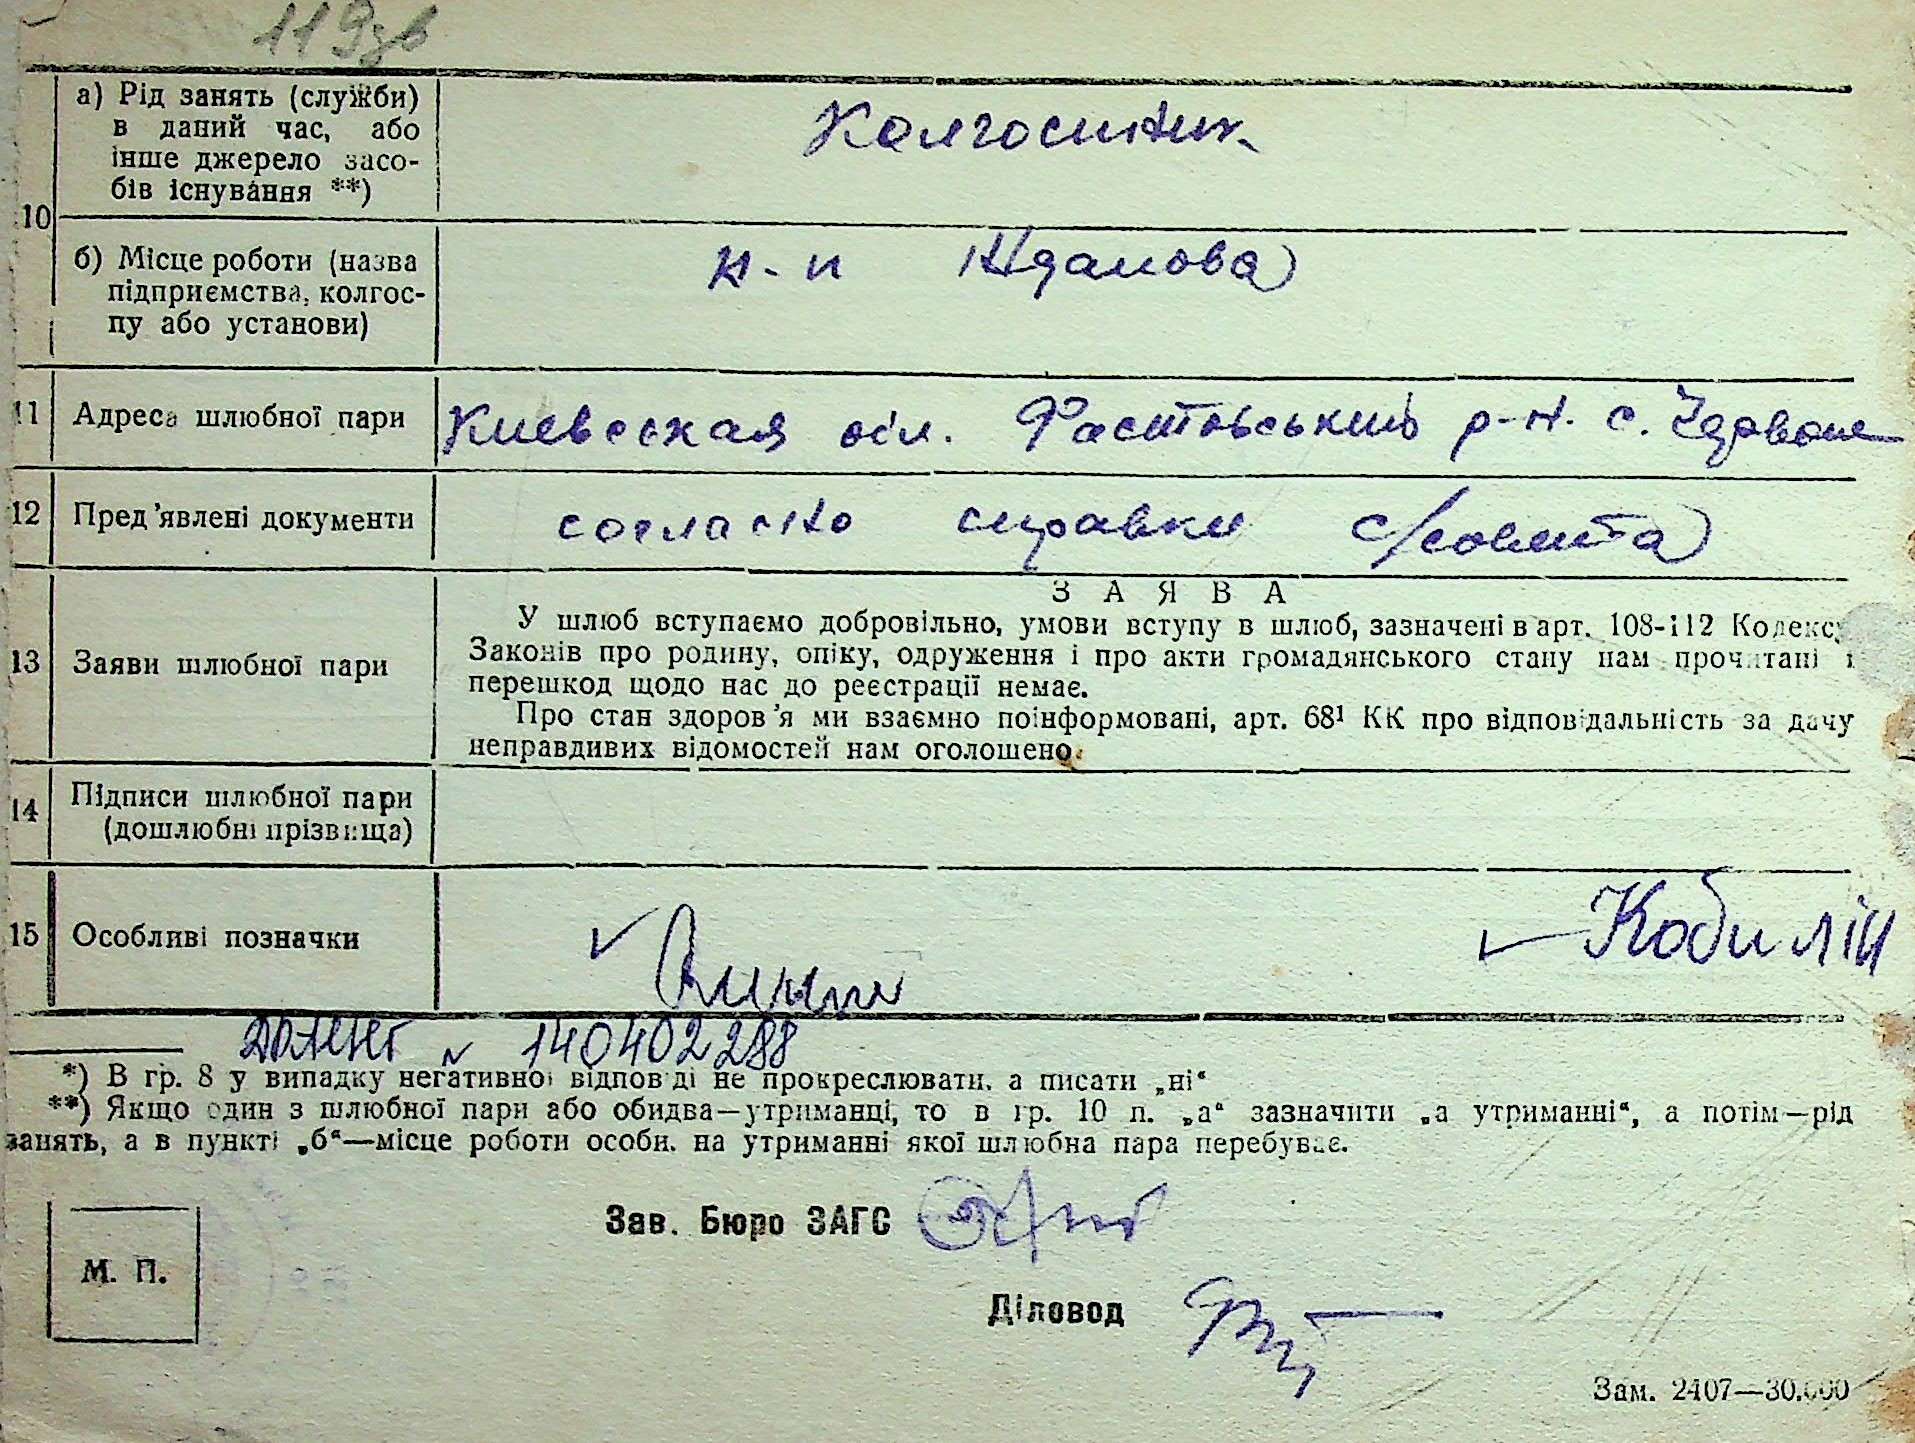 119зв
10
а) Рід занять (служби)
в даний час, або
інше джерело засо-
бів існування **)
Колгоспник
б) Місце роботи (назва
підприємства, колгос-
пу або установи)
к-п Жданова
11 Адреса шлюбної пари Киевская обл. Фастовський р-н. с. Червоне
12 Пред'явлені документи согласно справки с/совета
13 Заяви шлюбної пари
ЗАЯВА
У шлюб вступаємо добровільно, умови вступу в шлюб, зазначені в арт. 108-112 Кодексу
Законів про родину, опіку, одруження і про акти громадянського стану нам прочитані і
перешкод щодо нас до реєстрації немає.
Про стан здоров'я ми взаємно поінформовані, арт. 68¹ КК про відповідальність за дачу
неправдивих відомостей нам оголошено.
14 Підписи шлюбної пари
(дошлюбні прізвища)
15 Особливі позначки
Кобилін
№ 140402288
*) В гр. 8 у випадку негативної відповіді не прокреслювати, а писати „ні“
**) Якщо один з шлюбної пари або обидва—утриманці, то в гр. 10 п. „а“ зазначити „а утриманні“, а потім—рід
занять, а в пункті „б“—місце роботи особи, на утриманні якої шлюбна пара перебуває.
Зав. Бюро ЗАГС
М. П.
Діловод
Зам. 2407—30.000